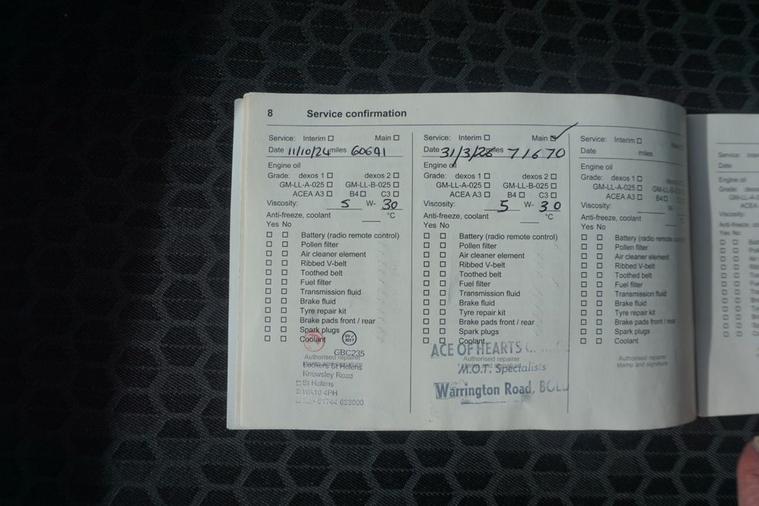 8 Service confirmation
Service: Interim Main
Date 11/10/24 miles 60691
Engine oil
Grade: dexos 1 dexos 2
GM-LL-A-025 GM-LL-B-025
ACEA A3 B4 C3
Viscosity: 5 W- 30
Anti-freeze, coolant °C
Yes No
Battery (radio remote control)
Pollen filter
Air cleaner element
Ribbed V-belt
Toothed belt
Fuel filter
Transmission fluid
Brake fluid
Tyre repair kit
Brake pads front / rear
Spark plugs
Coolant
GBC235
Authorised repairer
St Helens
Knowsley Road
St Helens
WA10 4PH
Service: Interim Main
Date 31/3/26 miles 71670
Engine oil
Grade: dexos 1 dexos 2
GM-LL-A-025 GM-LL-B-025
ACEA A3 B4 C3
Viscosity: 5 W- 30
Anti-freeze, coolant °C
Yes No
Battery (radio remote control)
Pollen filter
Air cleaner element
Ribbed V-belt
Toothed belt
Fuel filter
Transmission fluid
Brake fluid
Tyre repair kit
Brake pads front / rear
Spark plugs
Coolant
ACE OF HEARTS
Authorised repairer
M.O.T. Specialists
Warrington Road, BOLD
Service: Interim
Date miles
Engine oil
Grade: dexos 1
GM-LL-A-025
ACEA A3 B4
Viscosity: W-
Anti-freeze, coolant
Yes No
Battery (radio remote
Pollen filter
Air cleaner element
Ribbed V-belt
Toothed belt
Fuel filter
Transmission fluid
Brake fluid
Tyre repair kit
Brake pads front / rear
Spark plugs
Coolant
Authorised repairer
stamp and signature